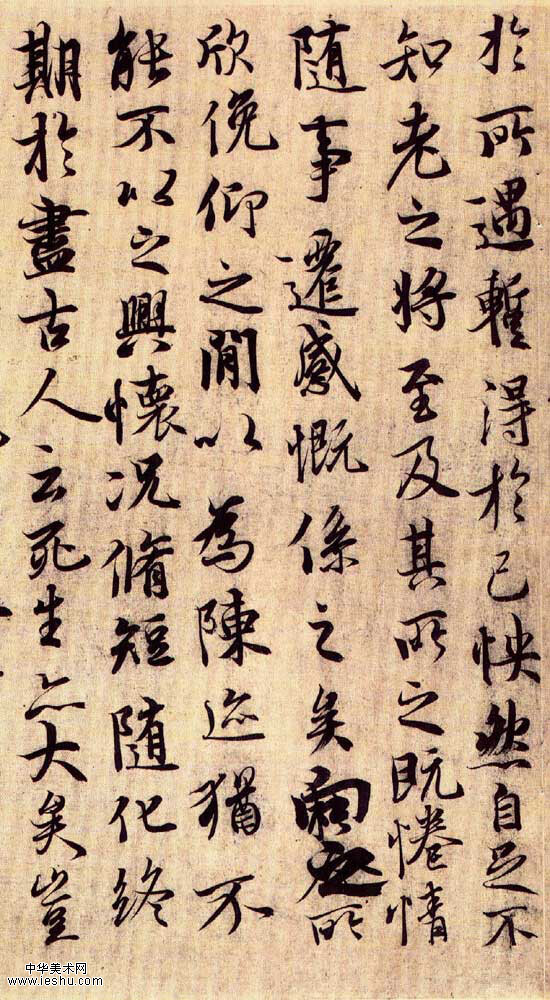 於所遇暫得於己怏然自足不
知老之將至及其所之既惓情
隨事遷感慨係之矣向之所
欣俛仰之間以為陳迹猶不
能不以之興懷況脩短隨化終
期於盡古人云死生亦大矣豈
中华美术网
www.ieshu.com